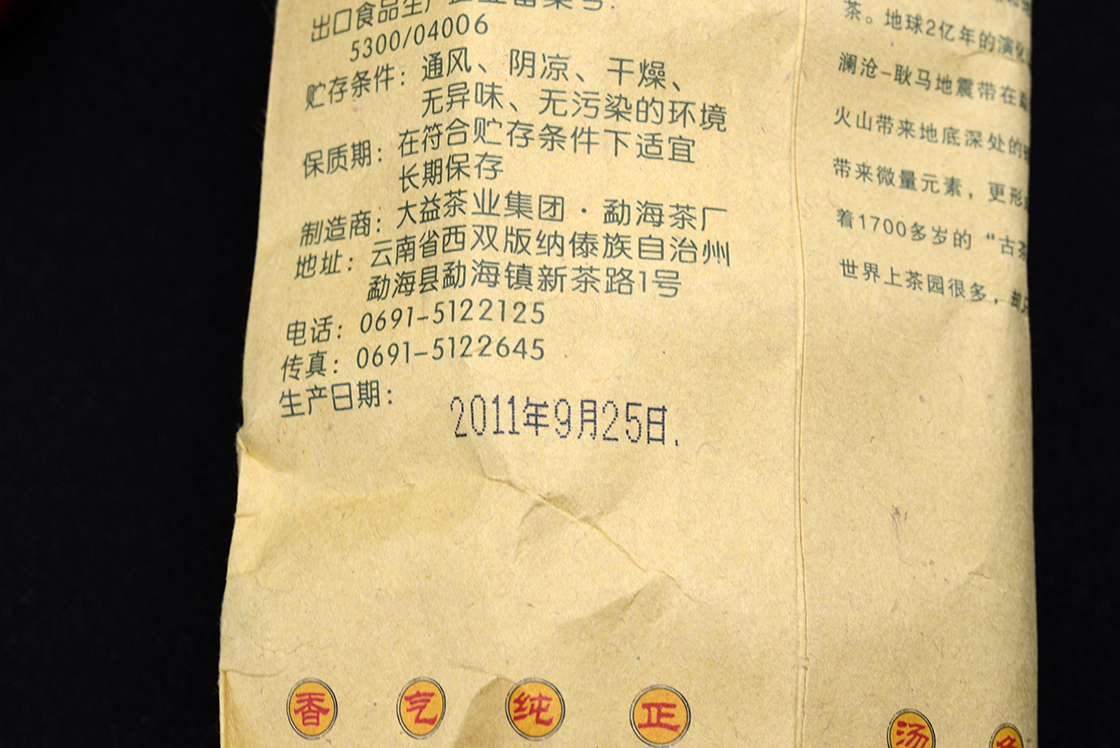 出口食品生产企业备案号:
5300/04006
贮存条件：通风、阴凉、干燥、
无异味、无污染的环境
保质期：在符合贮存条件下适宜
长期保存
制造商：大益茶业集团·勐海茶厂
地址：云南省西双版纳傣族自治州
勐海县勐海镇新茶路1号
电话：0691-5122125
传真：0691-5122645
生产日期：
2011年9月25日.
香 气 纯 正
茶。地球2亿年的演化
澜沧-耿马地震带在
火山带来地底深处的
带来微量元素，更形
着1700多岁的“古茶
世界上茶园很多，却只
汤